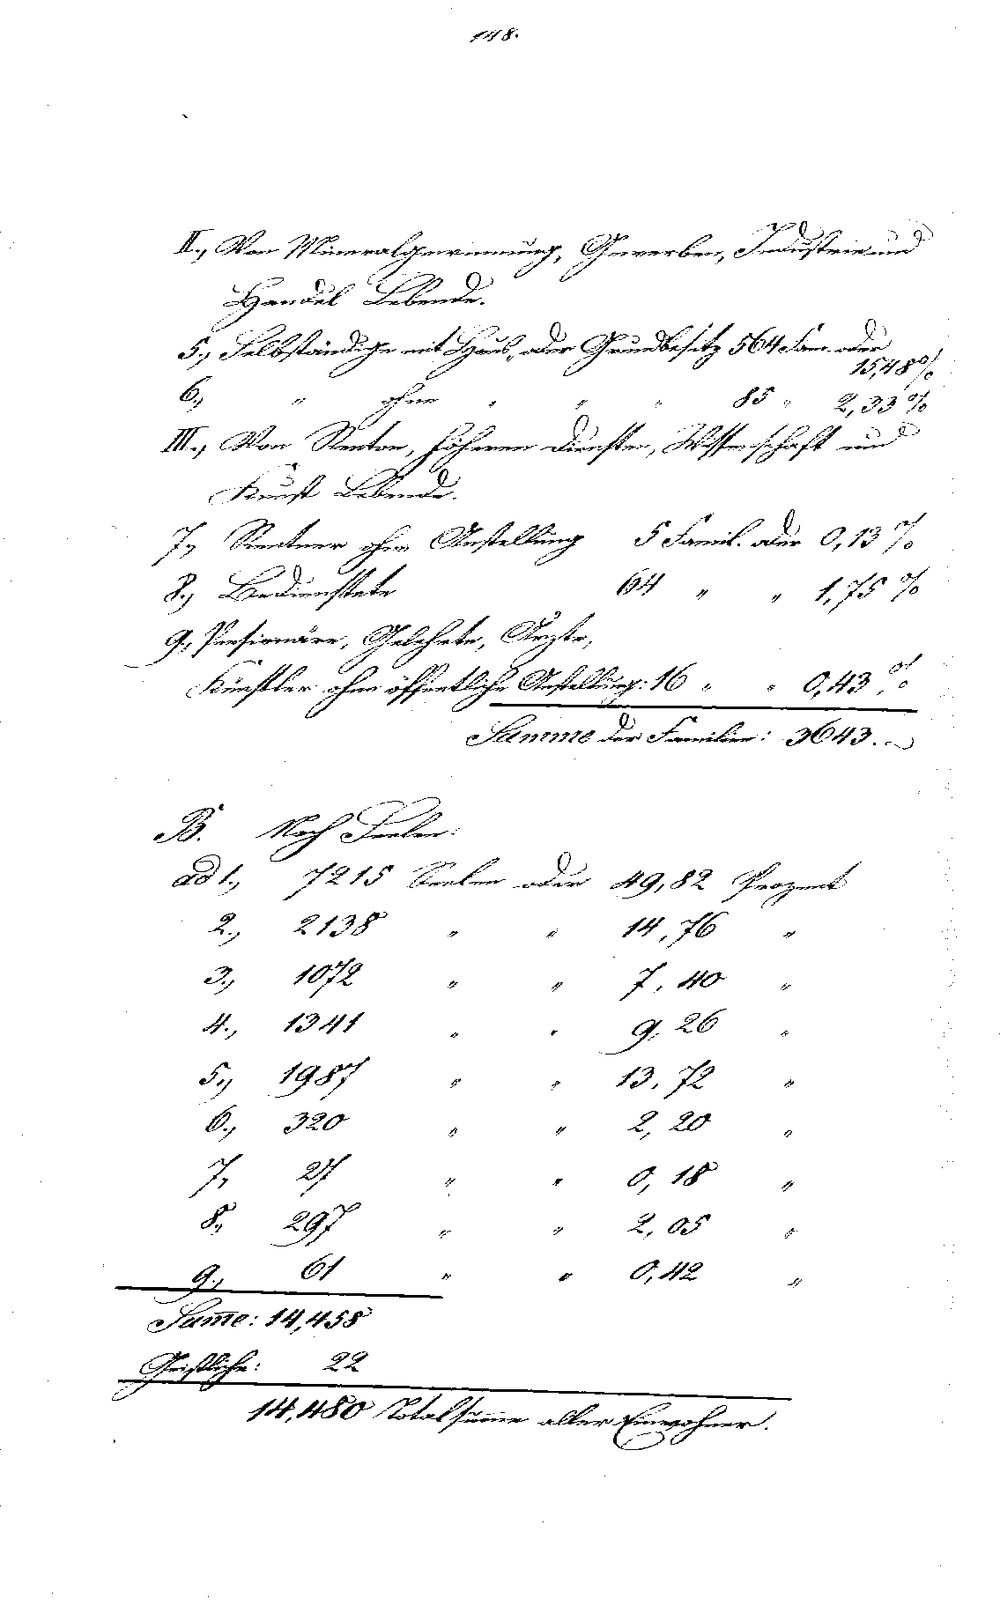 148.
II., Von Mineralgewinnung, Gewerben, Industrie und
Handel Lebende.
5., Selbständige mit Haus- oder Grundbesitz 564 Fam. oder
15,48%
6., " ohne " " " 85 " 2,33%
III., Von Renten, höheren Diensten, Wissenschaft und
Kunst Lebende.
7., Rentner ohne Anstellung 5 Famil. oder 0,13%
8., Bedienstete 64 " " 1,75%
9., Pensionäre, Gelehrte, Ärzte,
Künstler ohne öffentliche Anstellung: 16 " " 0,43%
Summe der Familien: 3643.
B. Nach Seelen:
ad 1., 7215 Seelen oder 49,82 Prozent
2., 2138 " " 14,76 "
3., 1072 " " 7,40 "
4., 1341 " " 9,26 "
5., 1987 " " 13,72 "
6., 320 " " 2,20 "
7, 27 " " 0,18 "
8., 297 " " 2,05 "
9., 61 " " 0,42 "
Sum̅e: 14,458
Geistliche: 22
14,480 Totalsum̅e aller Einwohner.